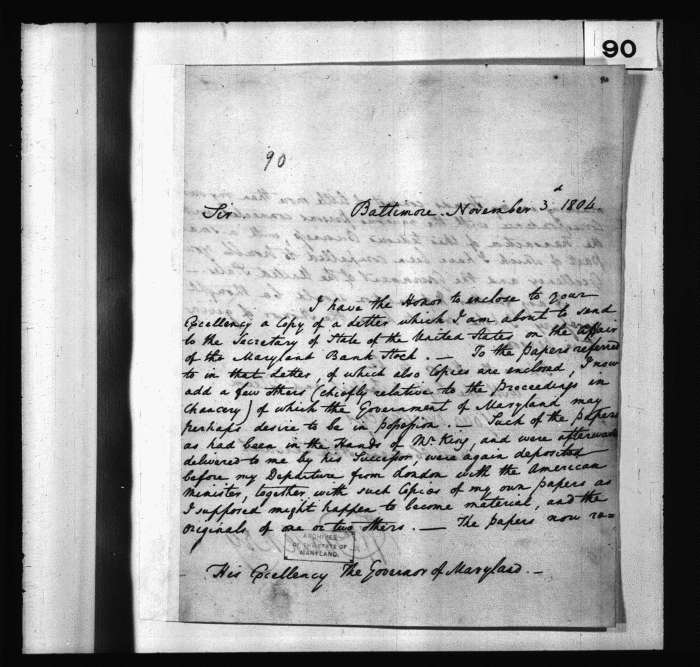 90
90
Baltimore. November 3.d 1804.
Sir
I have the Honor to enclose to your
Excellency a Copy of a Letter which I am about to send
to the Secretary of State of the United States on the affair
of the Maryland Bank Stock. — To the papers referred
to in that Letter, of which also Copies are enclosed, I now
add a few others (chiefly relative to the proceedings in
Chancery) of which the Government of Maryland may
perhaps desire to be in possession. — Such of the papers
as had been in the Hands of Mr. King, and were afterwards
delivered to me by his Successor, were again deposited
before my Departure from London with the American
Minister, together with such Copies of my own papers as
I supposed might happen to become material, and the
originals of one or two others. — The papers now re=
ARCHIVES
OF THE STATE OF
MARYLAND.
His Excellency The Governor of Maryland. —